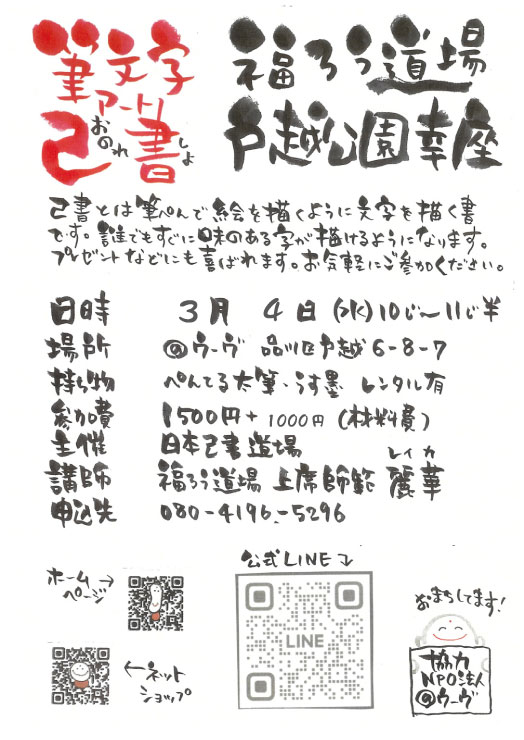 筆文字
アート!
己書
おのれ
しょ
福ろう道場
戸越公園幸座
己書とは筆ぺんで絵を描くように文字を描く書
です。誰でもすぐに味のある字が描けるようになります。
プレゼントなどにも喜ばれます。お気軽にご参加ください。
日時 3月 4日(水)10じ〜11じ半
場所 @ウーヴ 品川区戸越6-8-7
持ち物 ぺんてる太筆・うす墨 レンタル有
参加費 1500円+1000円(材料費)
主催 日本己書道場
レイカ
講師 福ろう道場 上席師範 麗華
申込先 080-4196-5296
公式LINE
ホーム
ページ
LINE
ネット
ショップ
おまちしてます!
協力
NPO法人
@ウーヴ